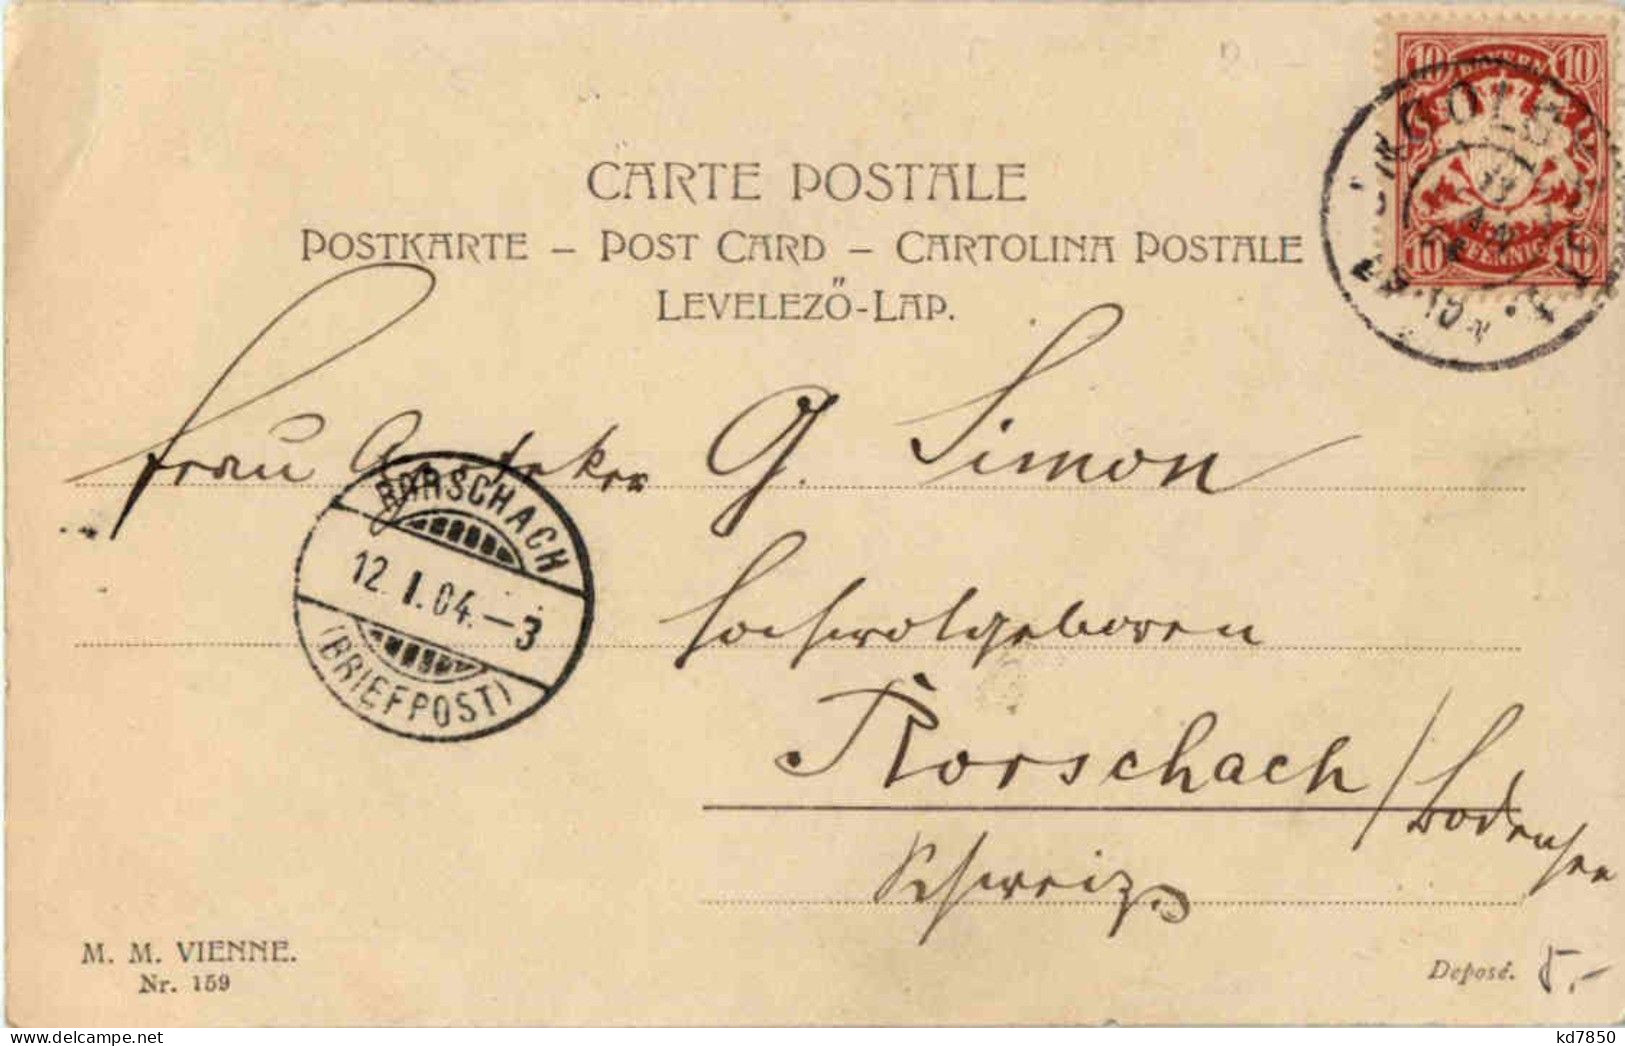 CARTE POSTALE
POSTKARTE – POST CARD – CARTOLINA POSTALE
LEVELEZŐ-LAP.
10 10
10 10
Frau G. Simon
RORSCHACH
12. I. 04. – 3
(BRIEFPOST)
Hochwolgeboren
Rorschach / Bodensee
Schweiz.
M. M. VIENNE.
Nr. 159
Deposé. 5.-
kd7850